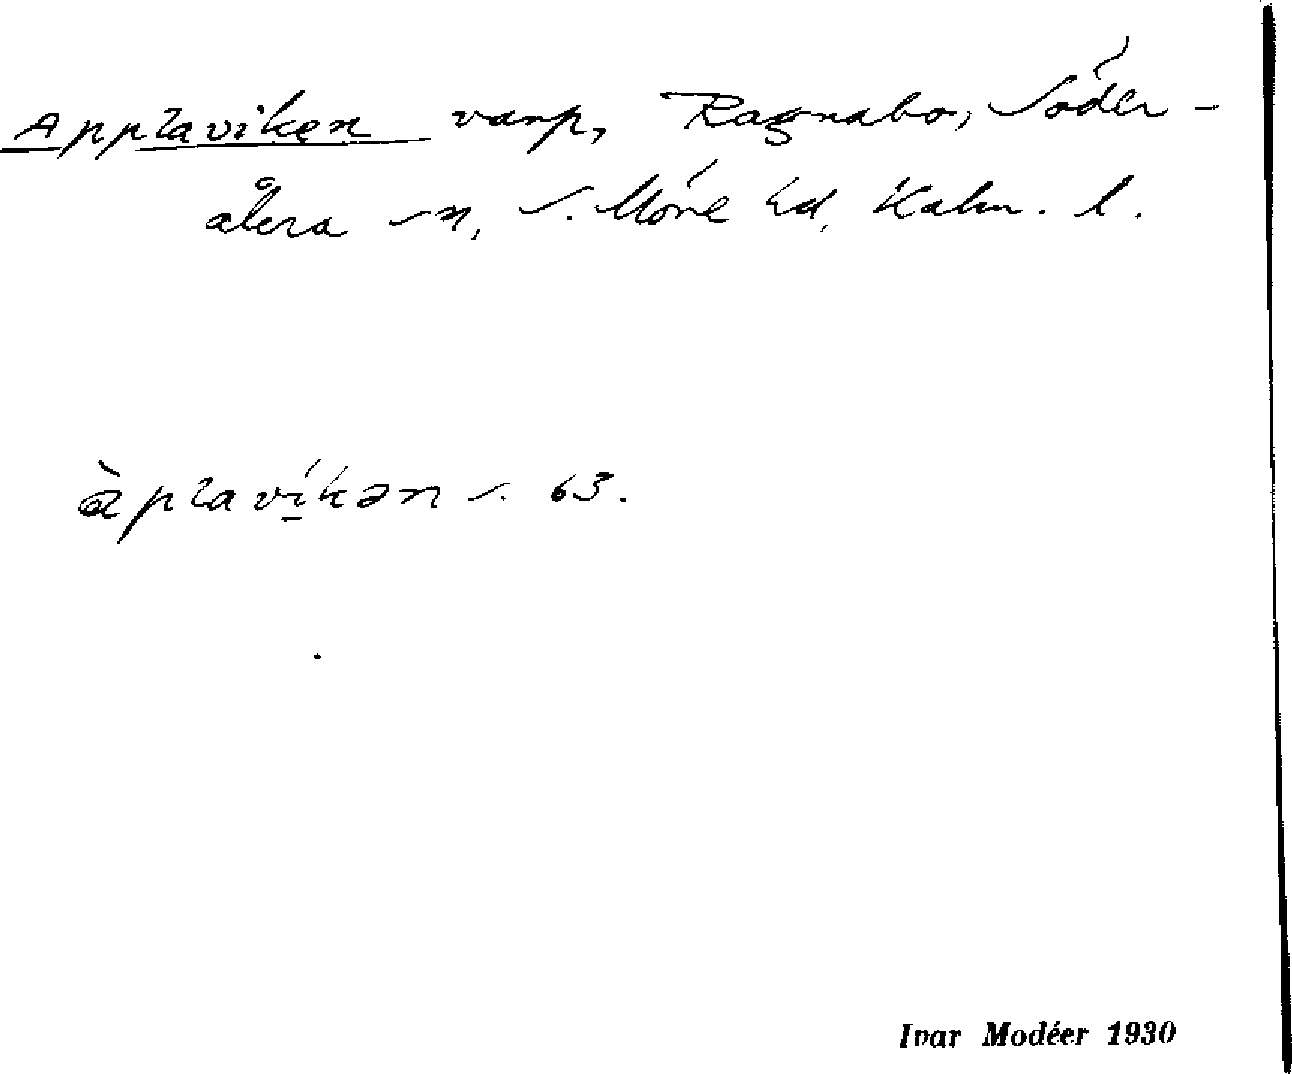 Applaviken varp, Ragnabo, Söder-
åkra sn, S. Möre hd, Kalm. l.
àplavíkən s. 63.
Ivar Modéer 1930